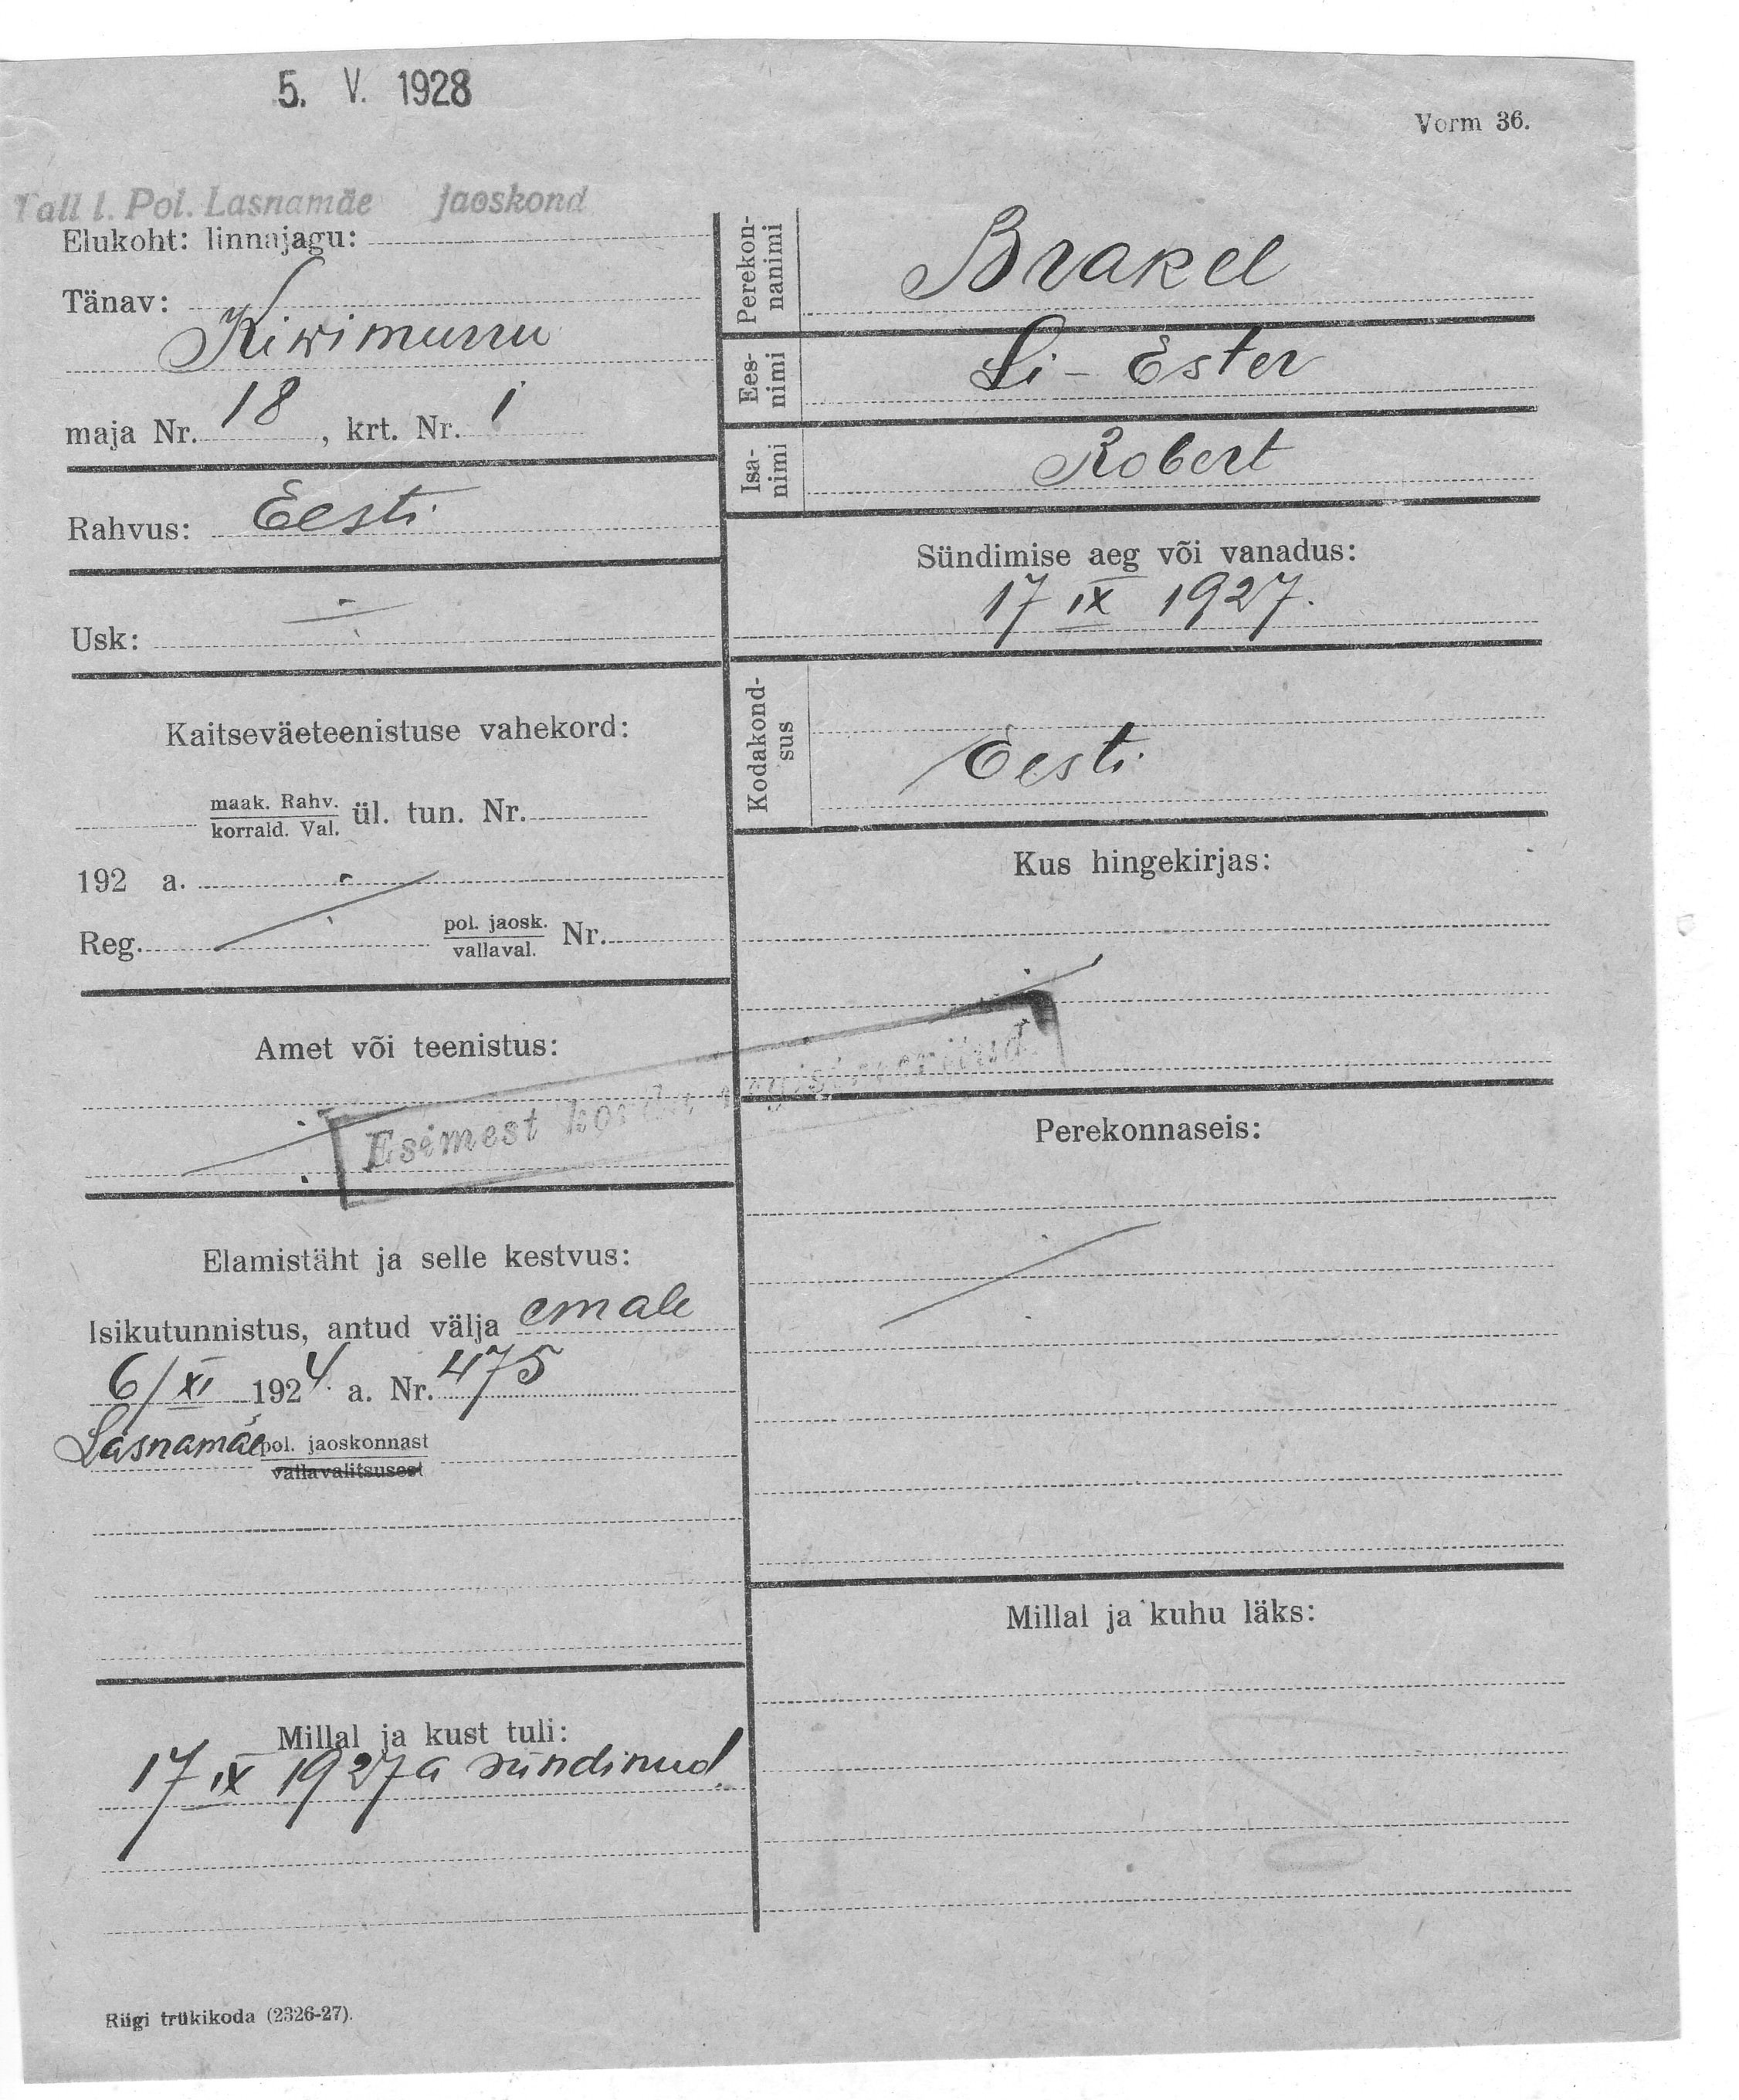 5. V. 1928
Vorm 36.
Tall l. Pol. Lasnamäe jaoskond
Elukoht: linnajagu:
Tänav:
Kiwimurru
maja Nr. 18, krt. Nr. 1
Rahvus: Eesti
Usk:
Kaitseväeteenistuse vahekord:
maak. Rahv.
korrald. Val.
ül. tun. Nr.
192 a.
Reg. pol. jaosk. Nr.
vallaval.
Amet või teenistus:
Esimest korda registreeritud.
Elamistäht ja selle kestvus:
Isikutunnistus, antud välja emale
6/XI 1924. a. Nr. 475
Lasnamäe pol. jaoskonnast
vallavalitsusest
Millal ja kust tuli:
17 IX 1927 a sündinud.
Perekon-
nanimi
Brakel
Ees-
nimi
Li - Ester
Isa-
nimi
Robert
Sündimise aeg või vanadus:
17 IX 1927.
Kodakond-
sus
Eesti
Kus hingekirjas:
Perekonnaseis:
Millal ja kuhu läks:
Riigi trükikoda (2326-27).